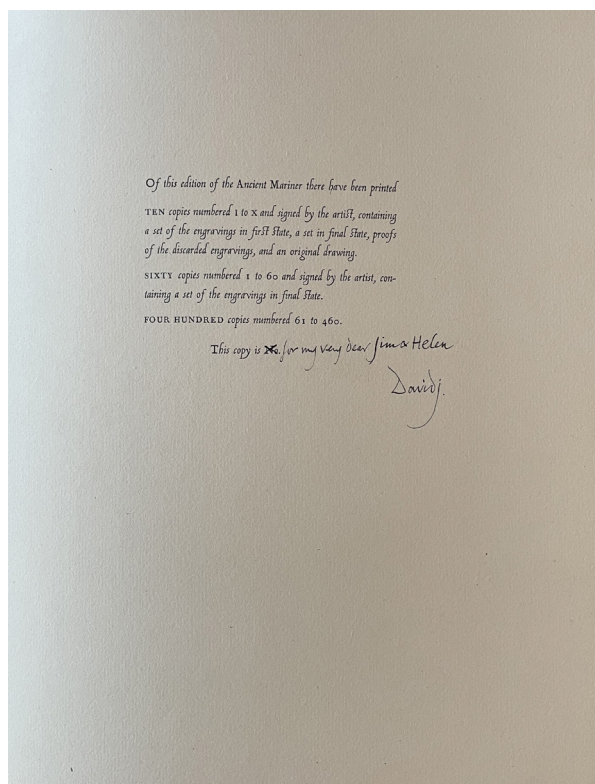 Of this edition of the Ancient Mariner there have been printed
TEN copies numbered I to X and signed by the artist, containing
a set of the engravings in first state, a set in final state, proofs
of the discarded engravings, and an original drawing.
SIXTY copies numbered 1 to 60 and signed by the artist, con-
taining a set of the engravings in final state.
FOUR HUNDRED copies numbered 61 to 460.
This copy is No. for my very dear Jim & Helen
David J.